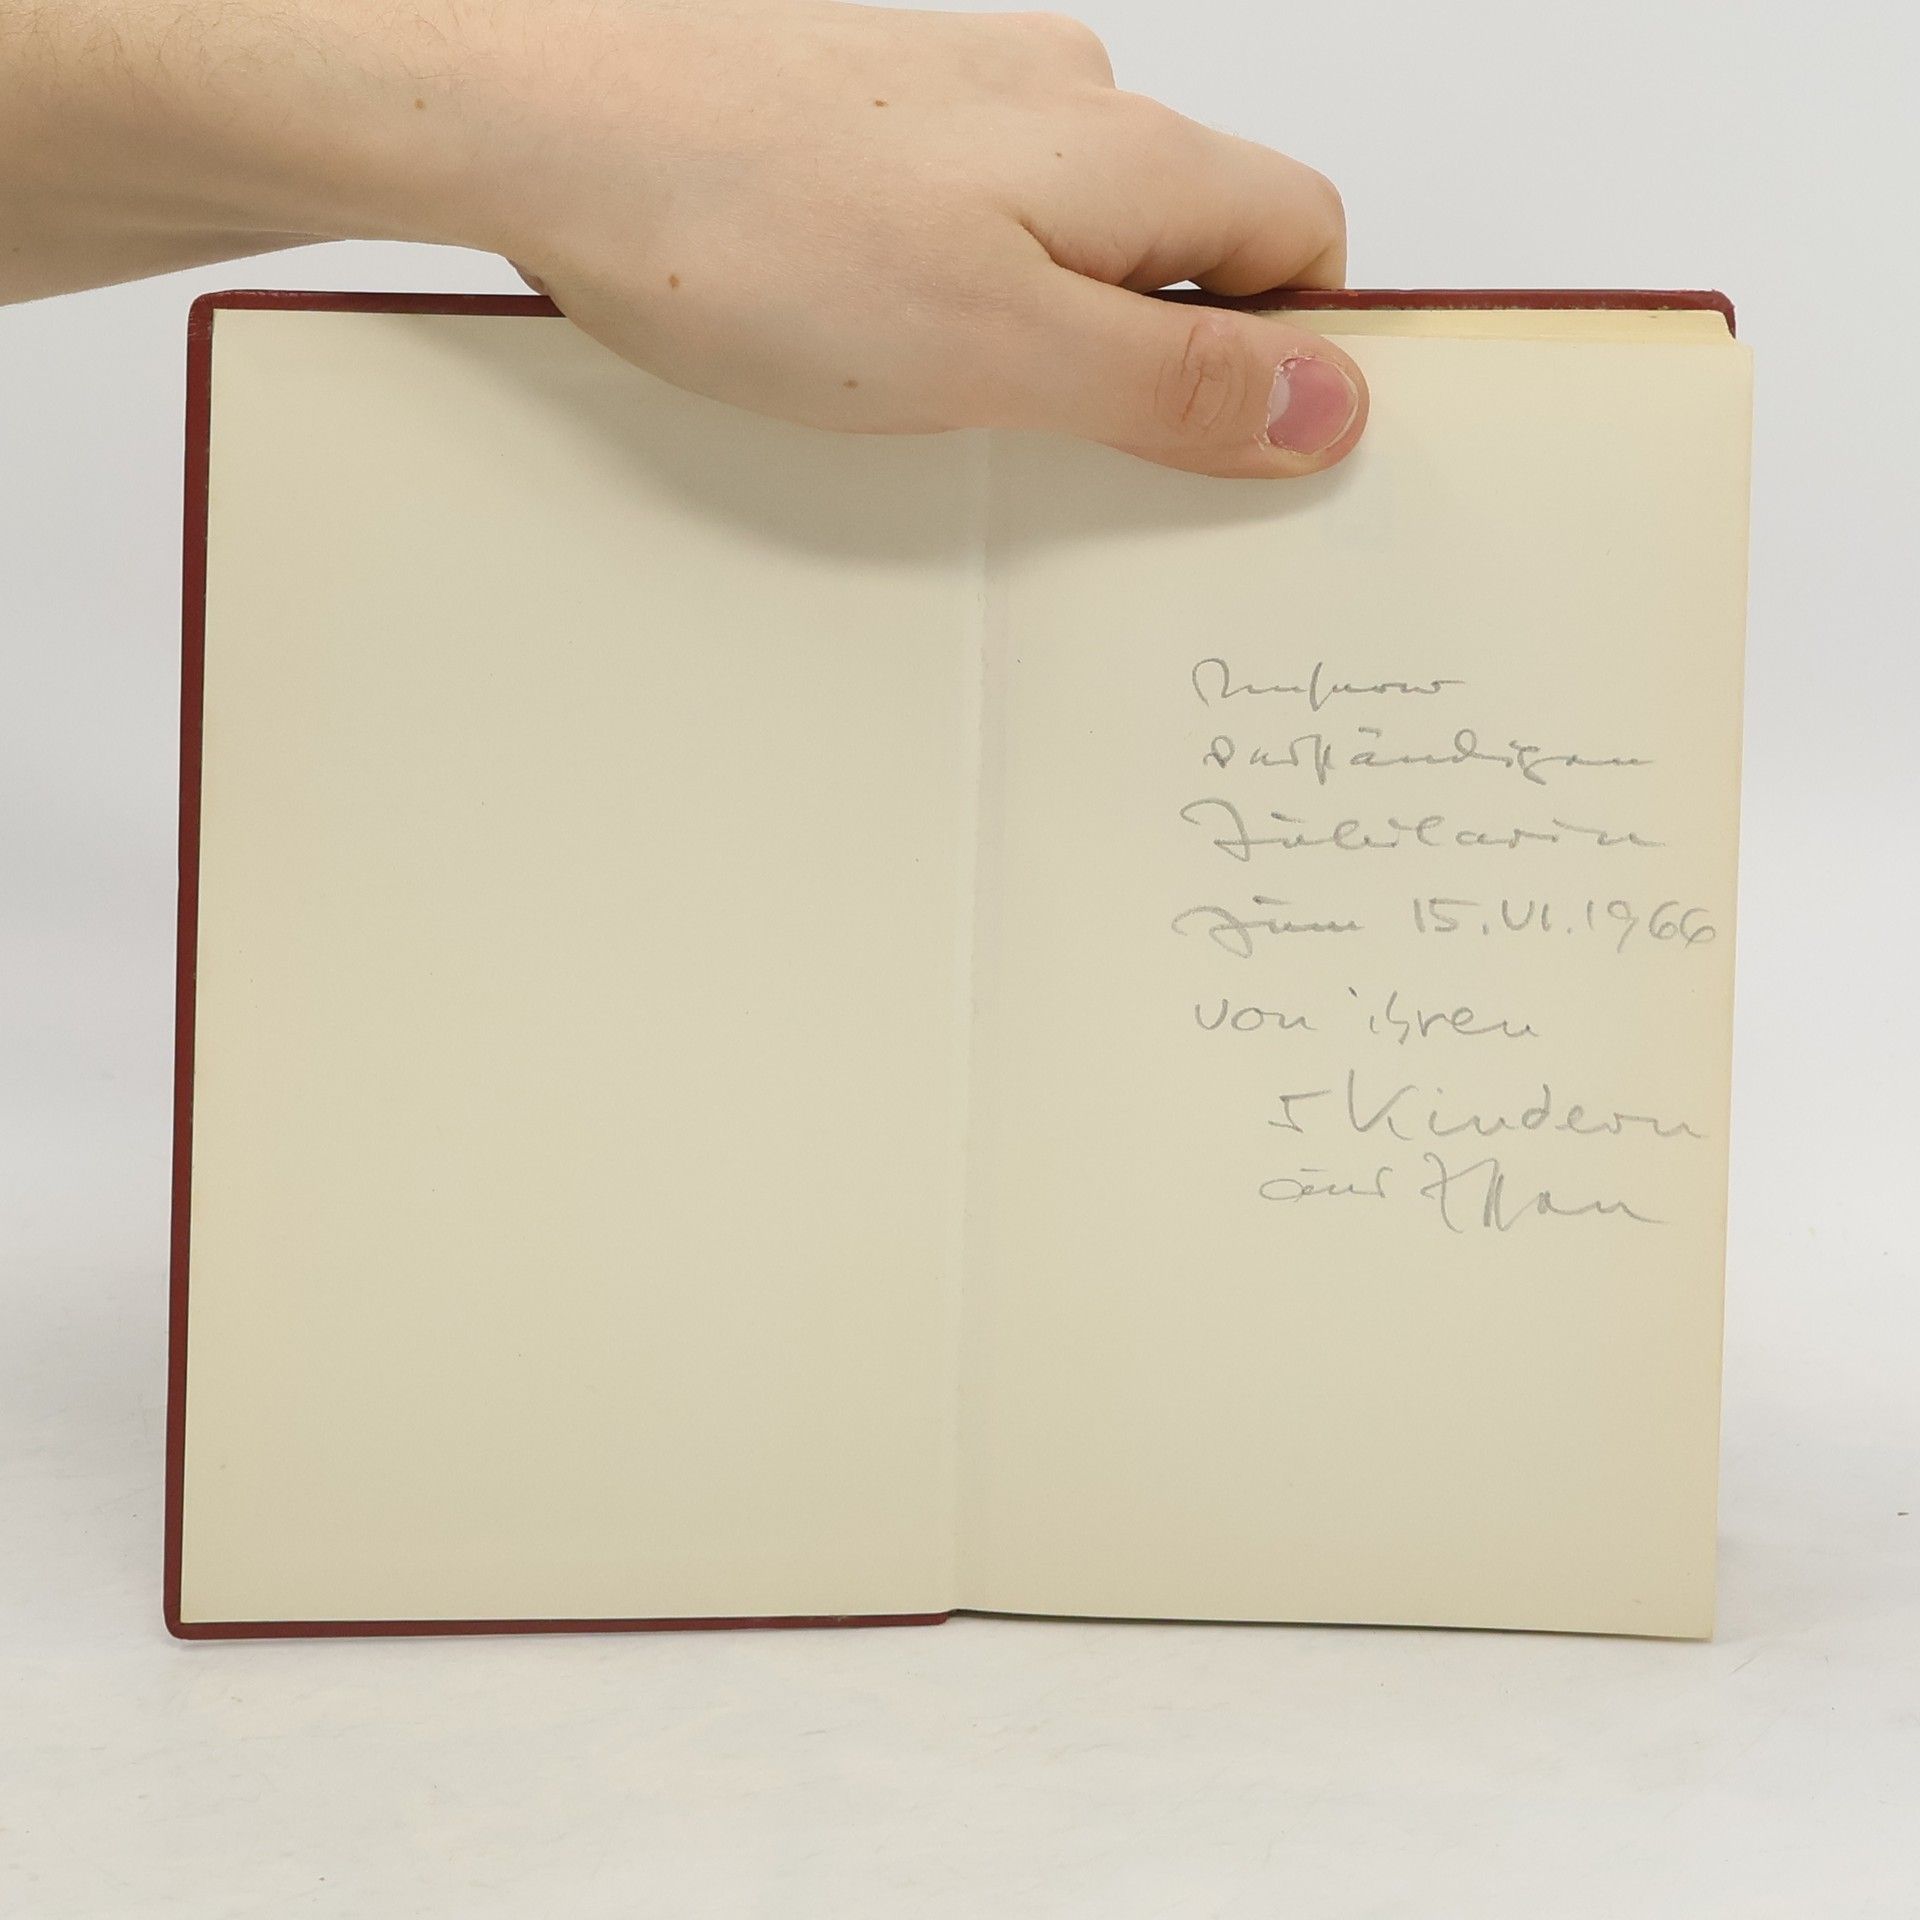 Unserer
verständigen
Jubilarin
zum 15.VI.1966
von ihren
5 Kindern
aus